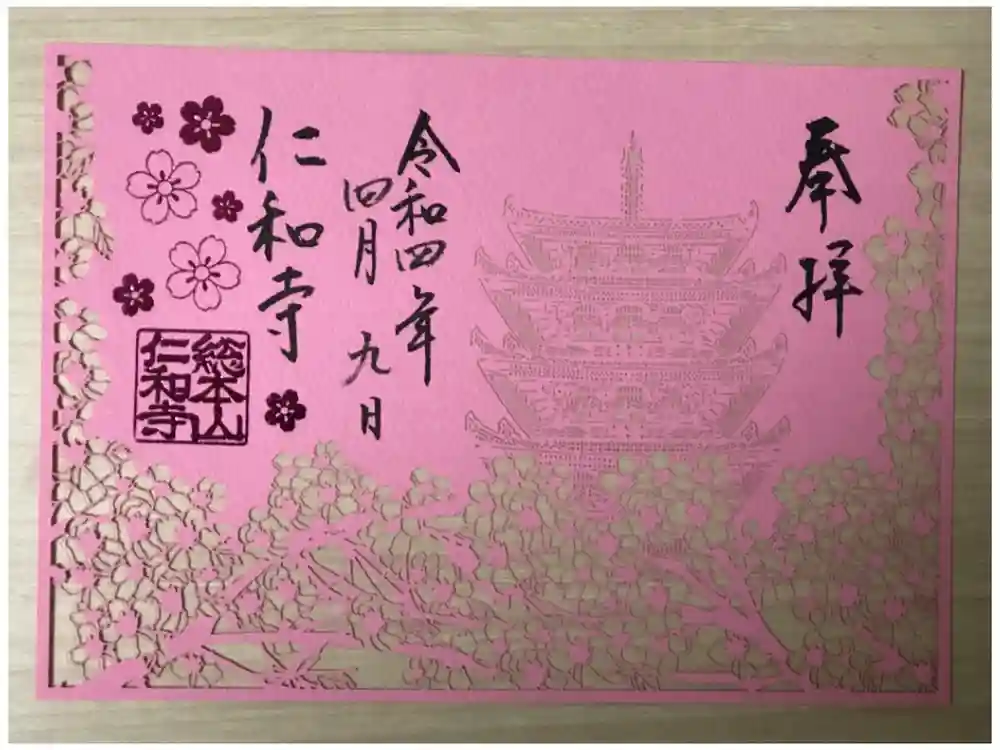 奉拝
令和四年
四月九日
仁和寺
総本山
仁和寺